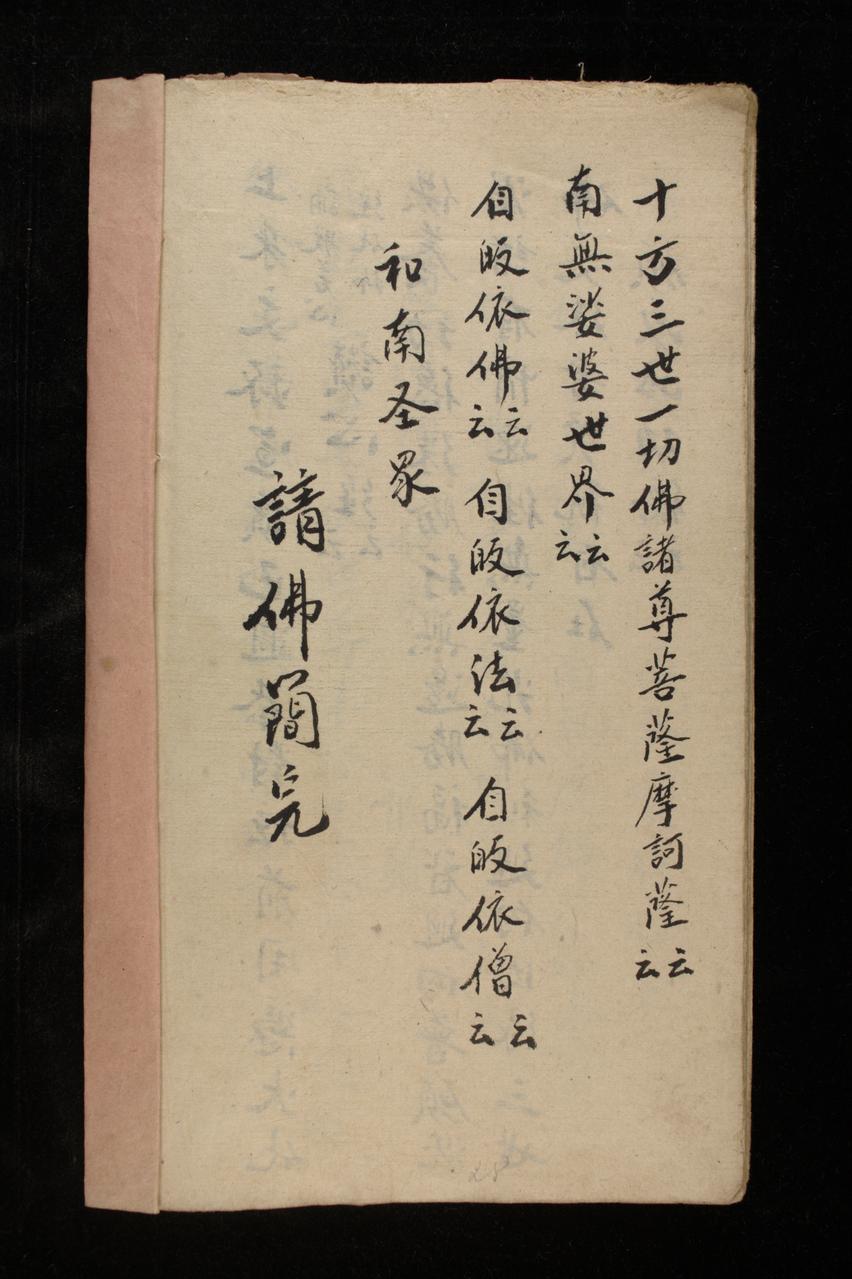 十方三世一切佛諸尊菩薩摩訶薩云云
南無娑婆世界云云
自皈依佛云云 自皈依法云云 自皈依僧云云
和南圣眾
請佛簡完